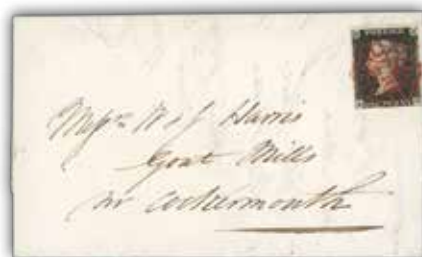 POSTAGE
Messrs W & J Harris
Goat Mills
nr Cockermouth